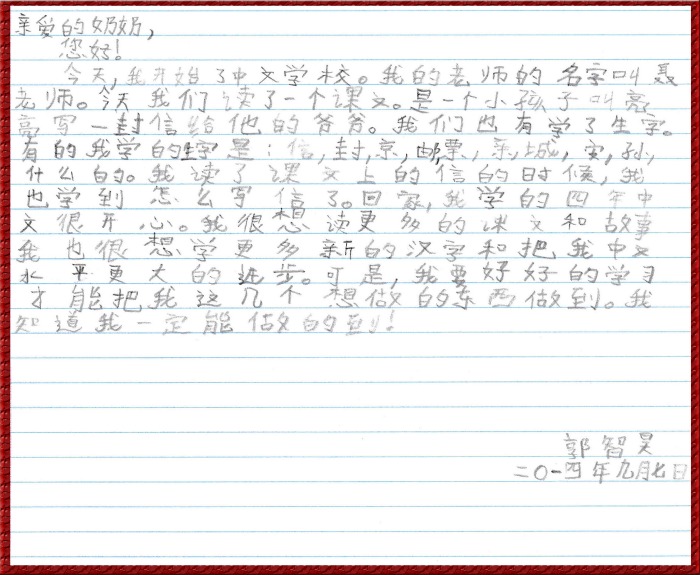 亲爱的奶奶,
您好!
今天,我开始了中文学校。我的老师的名字叫聂
老师。今天我们读了一个课文。是一个小孩子叫亮
亮写一封信给他的爷爷。我们也有学了生字。
有的我学的生字是:信,封,京,邮票,亲,城,实,孙,
什么的。我读了课文上的信的时候,我
也学到怎么写信了。回家,我学的四年中
文很开心。我很想读更多的课文和故事
我也很想学更多新的汉字和把我中文
水平更大的进步。可是,我要好好的学习
才能把我这几个想做的东西做到。我
知道我一定能做的到!
郭智昊
二〇一四年九月七日